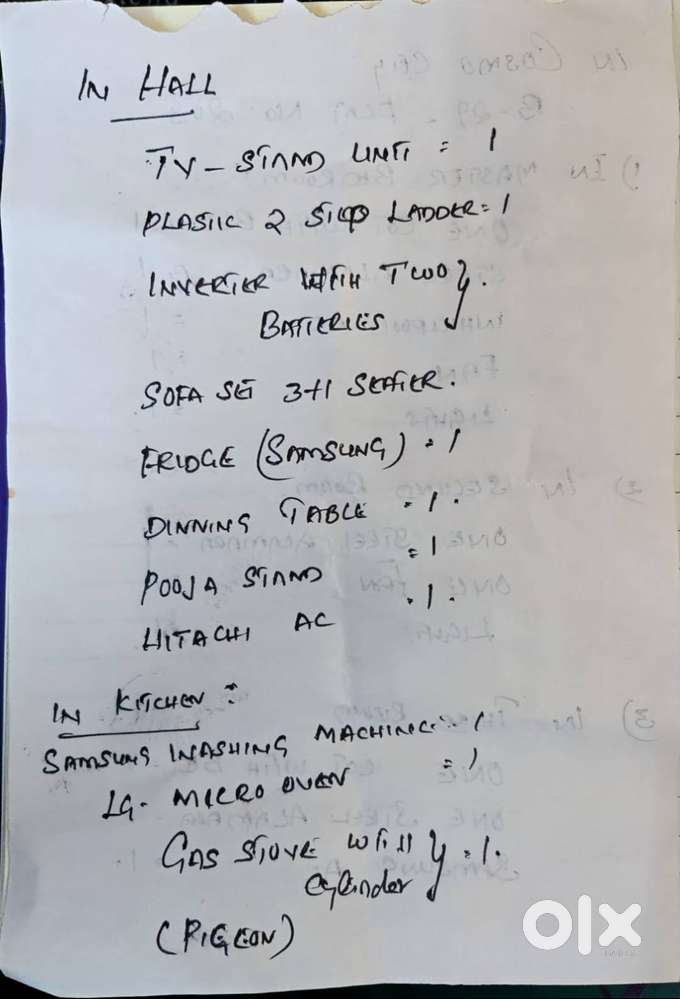 IN HALL
TV-STAND UNIT = 1
PLASTIC 2 STEP LADDER = 1
INVERTER WITH TWO }.
BATTERIES
SOFA SET 3+1 SEATER.
FRIDGE (SAMSUNG) = 1
DINNING TABLE = 1.
POOJA STAND = 1
HITACHI AC = 1.
IN KITCHEN :
SAMSUNG WASHING MACHINE = 1
LG. MICRO OVEN = 1
GAS STOVE WITH } = 1.
Cylinder
(PIGEON)
olx